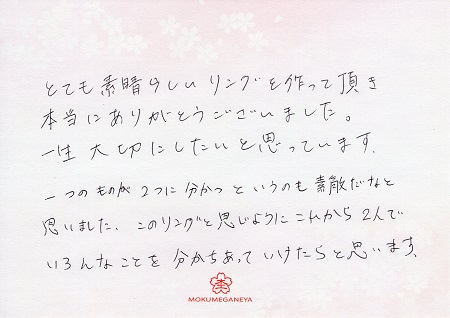 とても素晴らしいリングを作って頂き
本当にありがとうございました。
一生大切にしたいと思っています。
一つのものが2つに分かつというのも素敵だなと
思いました。このリングと同じようにこれから2人で
いろんなことを分かちあっていけたらと思います。
MOKUMEGANEYA